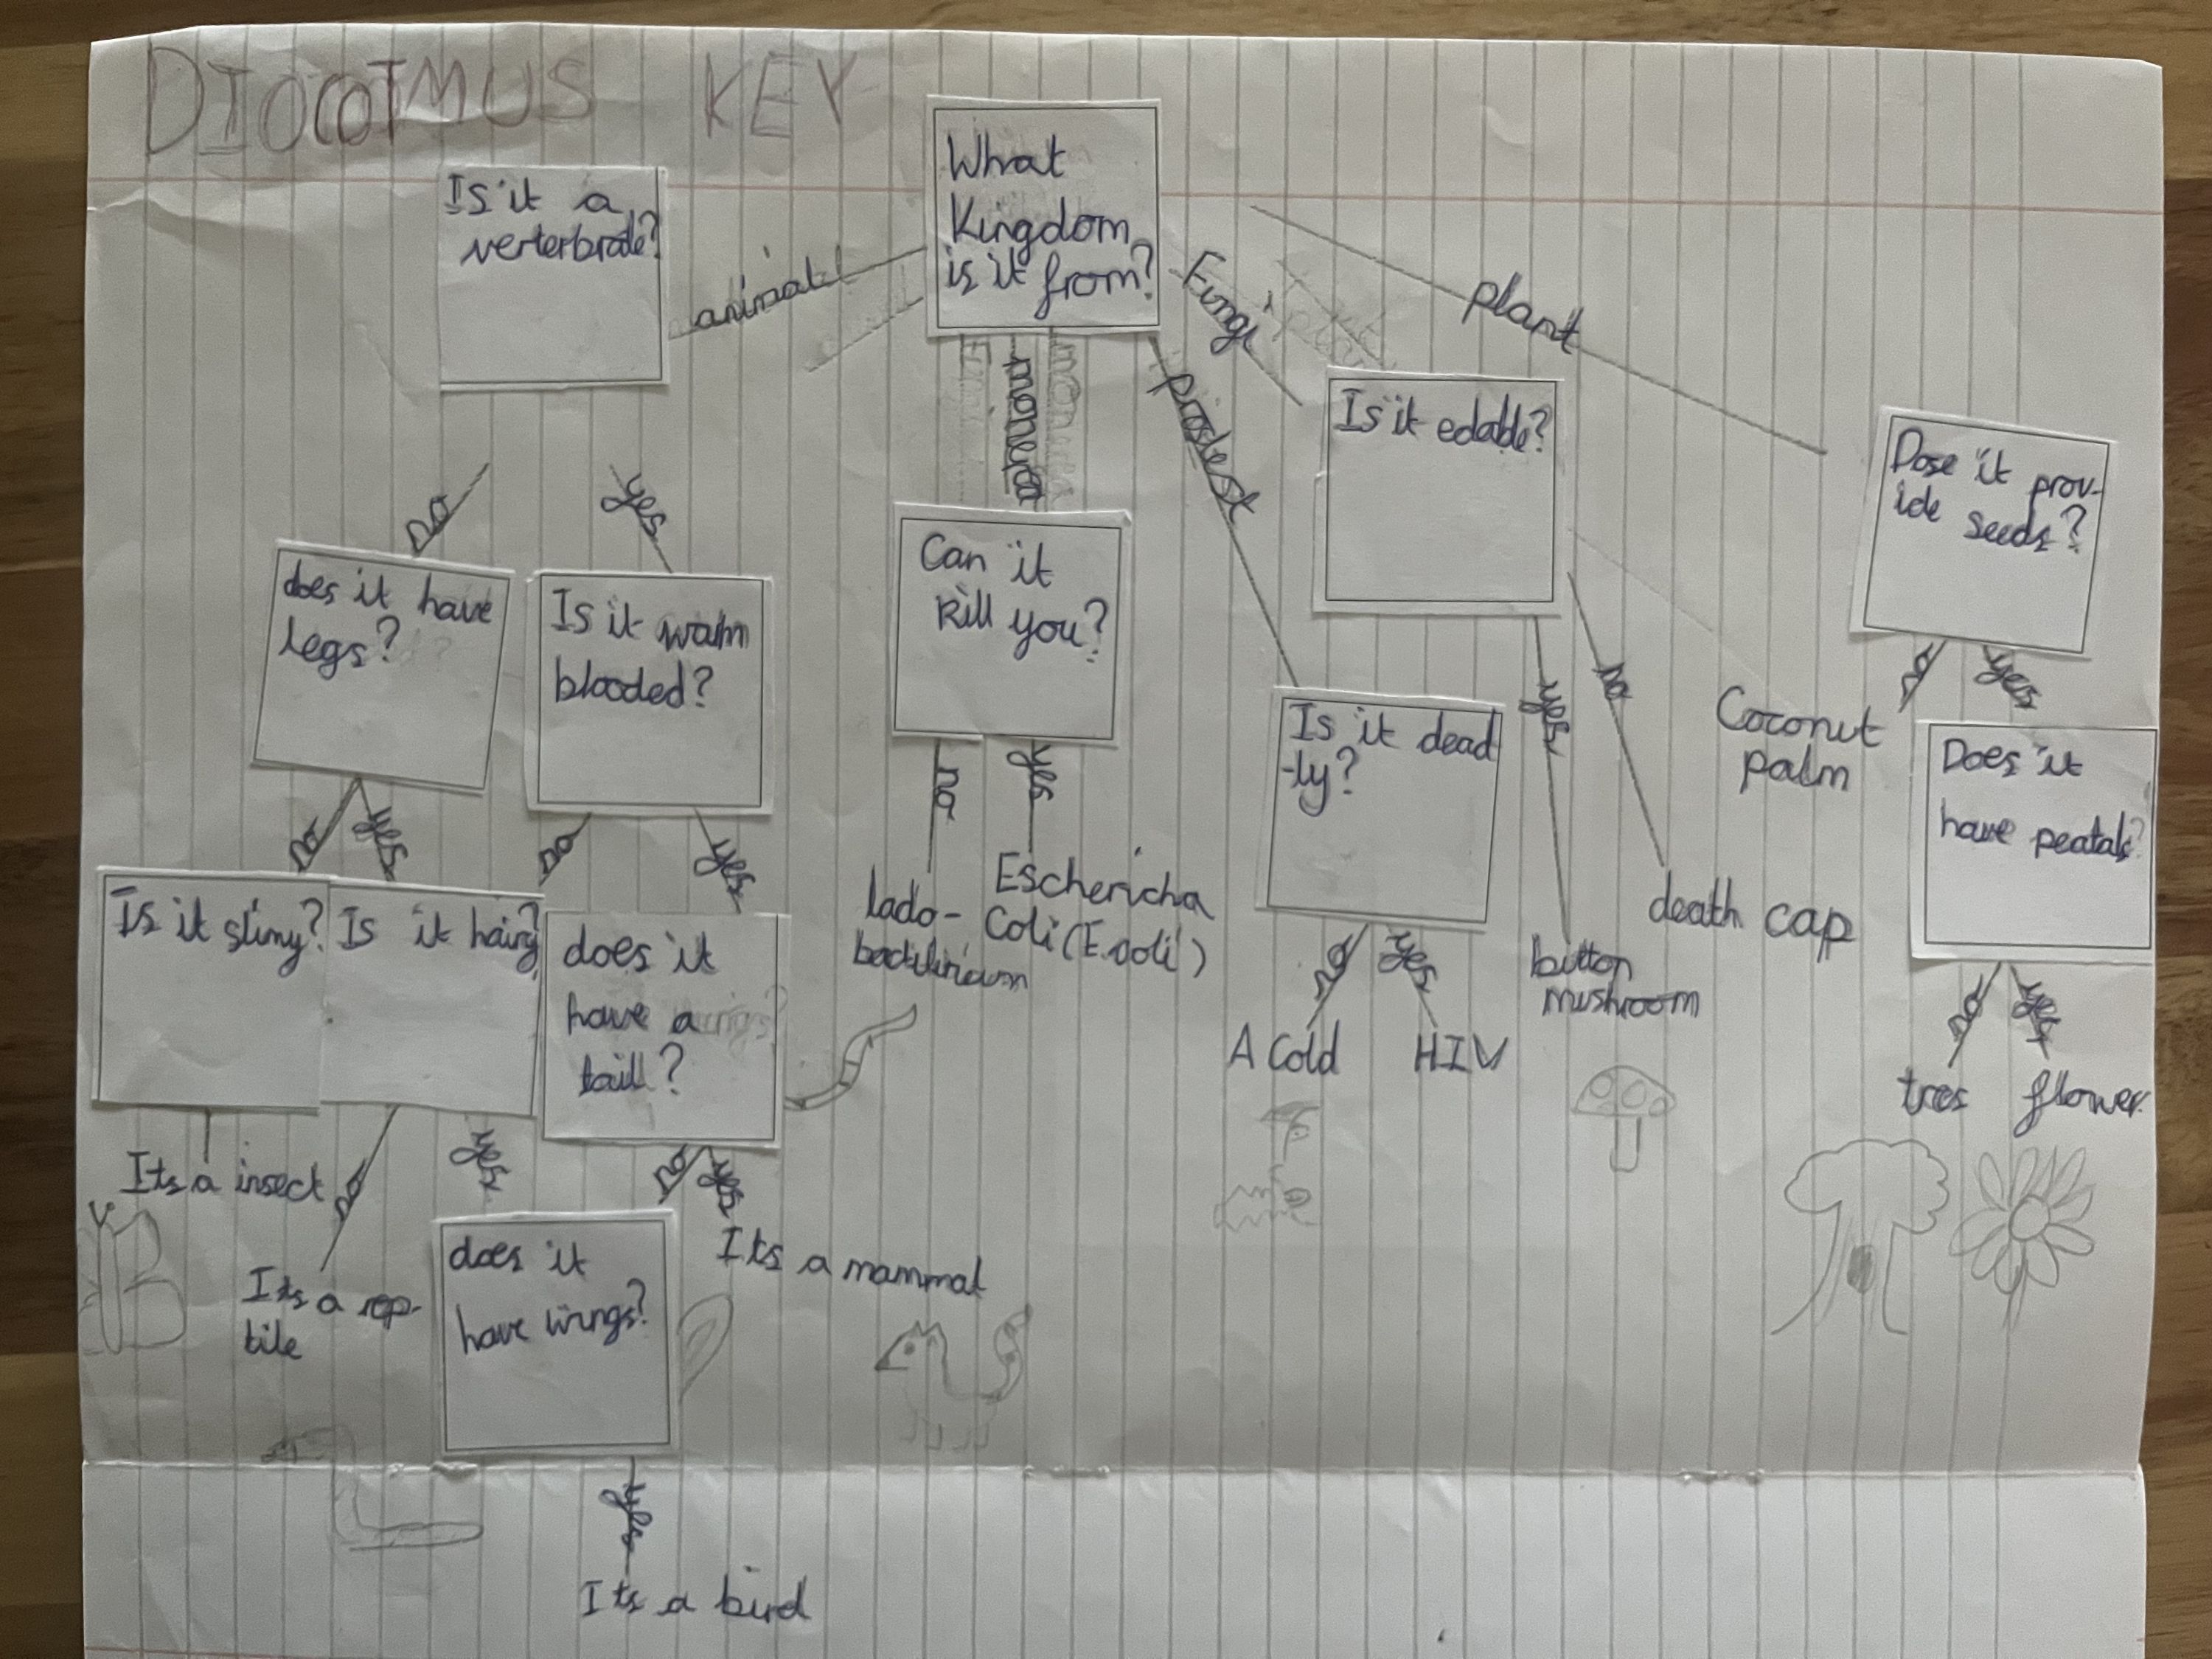 DIOCOTMUS KEY
What
Kingdom
is it from?
Is it a
verterbrate?
animal
monera
protest
Fungi
plant
Is it edable?
Dose it prov-
ide seeds?
no
yes
does it have
legs?
Is it warm
blooded?
Can it
kill you?
Is it dead
-ly?
yes
no
no
yes
Coconut
palm
Does it
have peatals?
no
yes
no
yes
no
yes
lado-
Eschericha
Coli (E. coli)
death cap
button
mushroom
Is it slimy?
Is it hairy?
does it
have a
tail?
no
yes
A Cold
HIV
no
yes
tres
flower
Its a insect
no
yes
no
yes
Its a rep-
tile
does it
have wings?
Its a mammal
yes
Its a bird